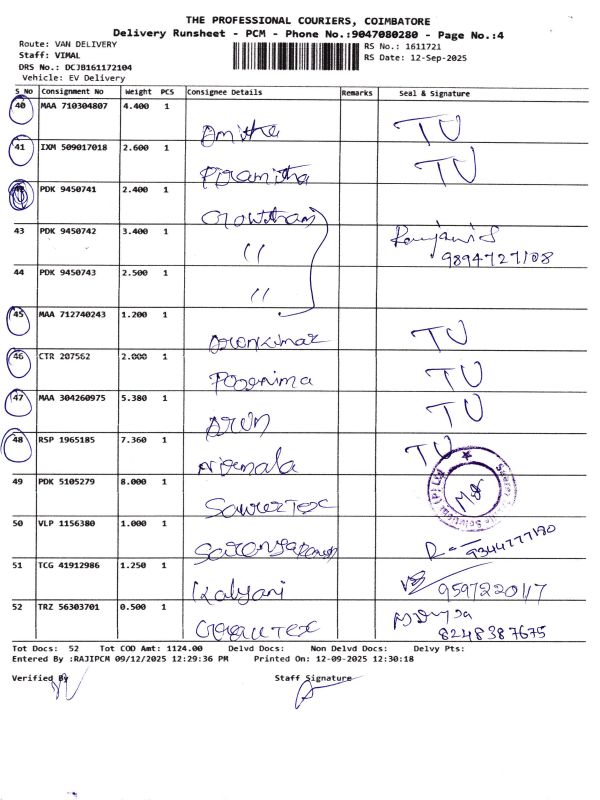 THE PROFESSIONAL COURIERS, COIMBATORE
Delivery Runsheet - PCM - Phone No.:9047080280 - Page No.:4
Route: VAN DELIVERY RS No.: 1611721
Staff: VIMAL RS Date: 12-Sep-2025
DRS No.: DCJB161172104
Vehicle: EV Delivery
S No Consignment No Weight PCS Consignee Details Remarks Seal & Signature
40 MAA 710304807 4.400 1 TU
41 IXM 509017018 2.600 1 TU
PDK 9450741 2.400 1 Gowtham
43 PDK 9450742 3.400 1 " Ranjani S
9894727108
44 PDK 9450743 2.500 1 "
45 MAA 712740243 1.200 1 Arunkumar TU
46 CTR 207562 2.000 1 Poornima TU
47 MAA 304260975 5.380 1 Arun TU
48 RSP 1965185 7.360 1 Nirmala TU
49 PDK 5105279 8.000 1
50 VLP 1156380 1.000 1 9344777180
51 TCG 41912986 1.250 1 Kalyani
52 TRZ 56303701 0.500 1 8248387675
Tot Docs: 52 Tot COD Amt: 1124.00 Delvd Docs: Non Delvd Docs: Delvy Pts:
Entered By :RAJIPCM 09/12/2025 12:29:36 PM Printed On: 12-09-2025 12:30:18
Verified By Staff Signature